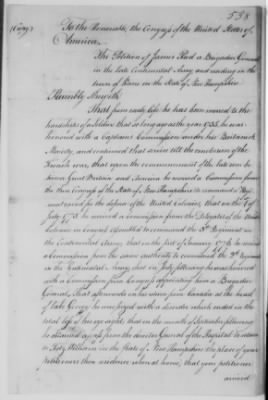 538
(Copy)
To the Honorable, the Congress of the United States of
America.
The Petition of James Reed a Brigadier General
in the late Continental Army and residing in the
town of Keene in the State of New Hampshire
Humbly Sheweth
That from early life he has been inured to the
hardships of a Soldier that so long ago as the year 1755, he was
honored with a Captains Commission under his Britannick
Majesty, and continued that service till the conclusion of the
French war, that upon the commencement of the late war be-
tween Great Britain and America he received a Commission from
the then Congress of the State of New Hampshire to command a Regi-
ment raised for the defence of the United Colonies, that on the
July 1775 he received a Commission from the Delegates of the United
Colonies in Congress Assembled to command the 3d Regiment in
the Continental Army, that on the first of January 1776 he received
a Commission from the same authority to command the 2d Regiment
in the Continental Army, that in July following he was honored
with a Commission from Congress appointing him a Brigadier
General, that afterwards on his return from Canada at the head
of Lake George he was seized with a disorder which ended in the
total loss of his eye sight, that in the month of September following
he obtained a pass from the director General of the Hospital to return
to Fitz William in the State of New Hampshire the place of your
petitioners then residence when at home, that your petitioner
arrived